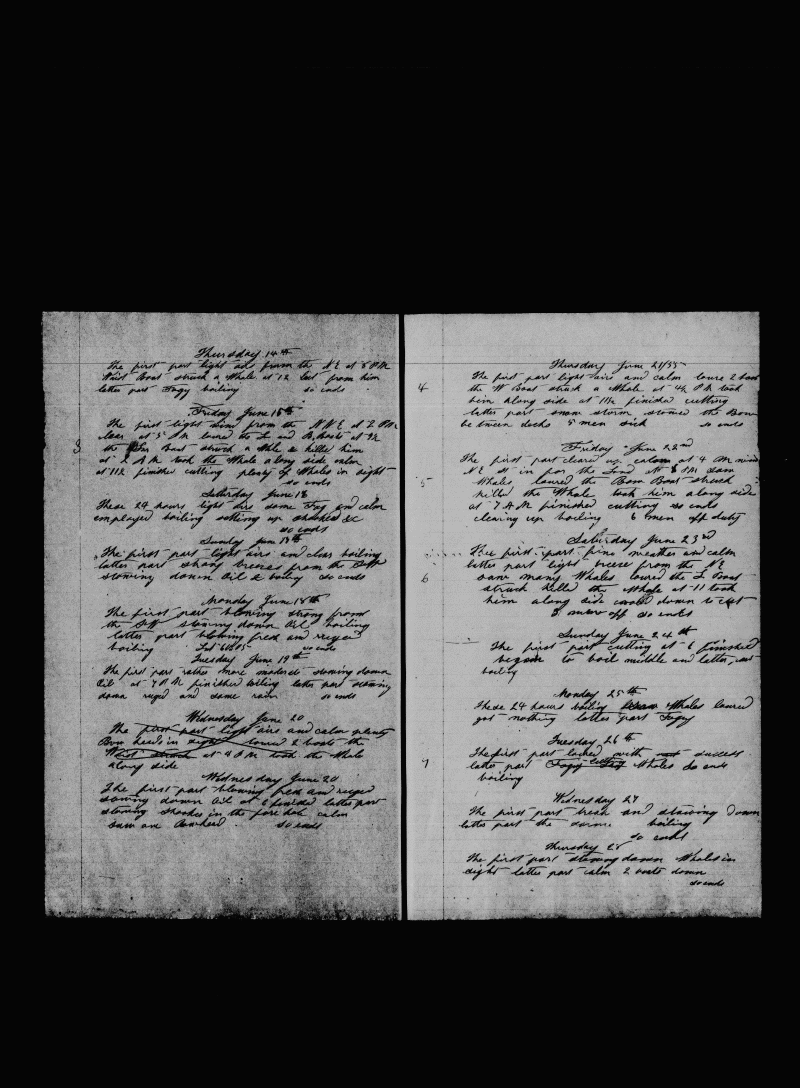 Thursday 14th
The first part light airs from the NE at 8 PM
Waist Boat struck a Whale at 12 lost from him
latter part Fogy boiling so ends
Friday June 15th
The first light wind from the NNE at 2 PM
clear at 5 AM lowered the L and B Boats at 8½
3 the Boat struck a Whale & killed him
at 2 AM took the Whale along side calm
at 11½ finished cutting plenty of Whales in sight
so ends
Saturday June 16
These 24 hours light airs some Fog and calm
employed boiling setting up shooks &c
so ends
Sunday June 17th
The first part light airs and clear boiling
latter part strong breezes from the SW
stowing down Oil & boiling so ends
Monday June 18th
The first part blowing strong from
the SW stowing down Oil boiling
latter part blowing fresh and ruged
boiling Lat so ends
Tuesday June 19th
The first part rather more moderate stowing down
Oil at 7 PM finished boiling latter part stowing
down ruged and some rain so ends
Wednesday June 20
The first part light airs and calm plenty
Bow heads in sight lowered 2 boats the
Waist struck at 4 PM took the Whale
along side
Wednesday June 20
The first part blowing fresh and ruged
stowing down Oil at 6 finished latter part
stowing shooks in the fore hole calm
saw one Bowhead so ends
Thursday June 21/55
The first part light airs and calm lowered 2 boats
4 the W Boat struck a Whale at 4½ PM took
him along side at 11½ finished cutting
latter part snow storm stowed the Bone
between decks 5 men sick so ends
Friday June 22nd
The first part cleared up calm at 4 AM wind
NE st in for the Land at 8 PM saw
5 Whales lowered the Bow Boat struck
killed the Whale took him along side
at 7 AM finished cutting so ends
clearing up boiling 6 men off duty
Saturday June 23rd
The first part fine weather and calm
latter part light breeze from the NE
6 saw many Whales lowered the L Boat
struck killed the Whale at 11 took
him along side down to cut
5 men off so ends
Sunday June 24th
The first part cutting at 6 finished
began to boil middle and latter part
boiling
Monday 25th
These 24 hours boiling Whales lowered
got nothing latter part Fogy
Tuesday 26th
The first part lowered with success
7 latter part Fogy cutting Whales so ends
boiling
Wednesday 27
The first part fresh and stowing down
latter part the same boiling
so ends
Thursday 28
The first part stowing down Whales in
sight latter part calm 2 boats down
so ends